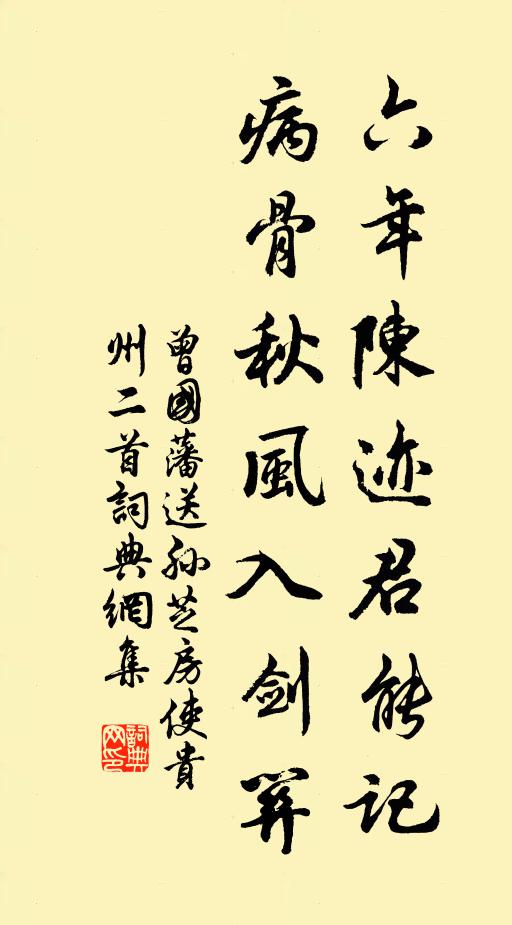 六年陳迹君能記
病骨秋風入劍關
曾國藩送孙芝房使貴
州二首詞典網集
詞典
网印